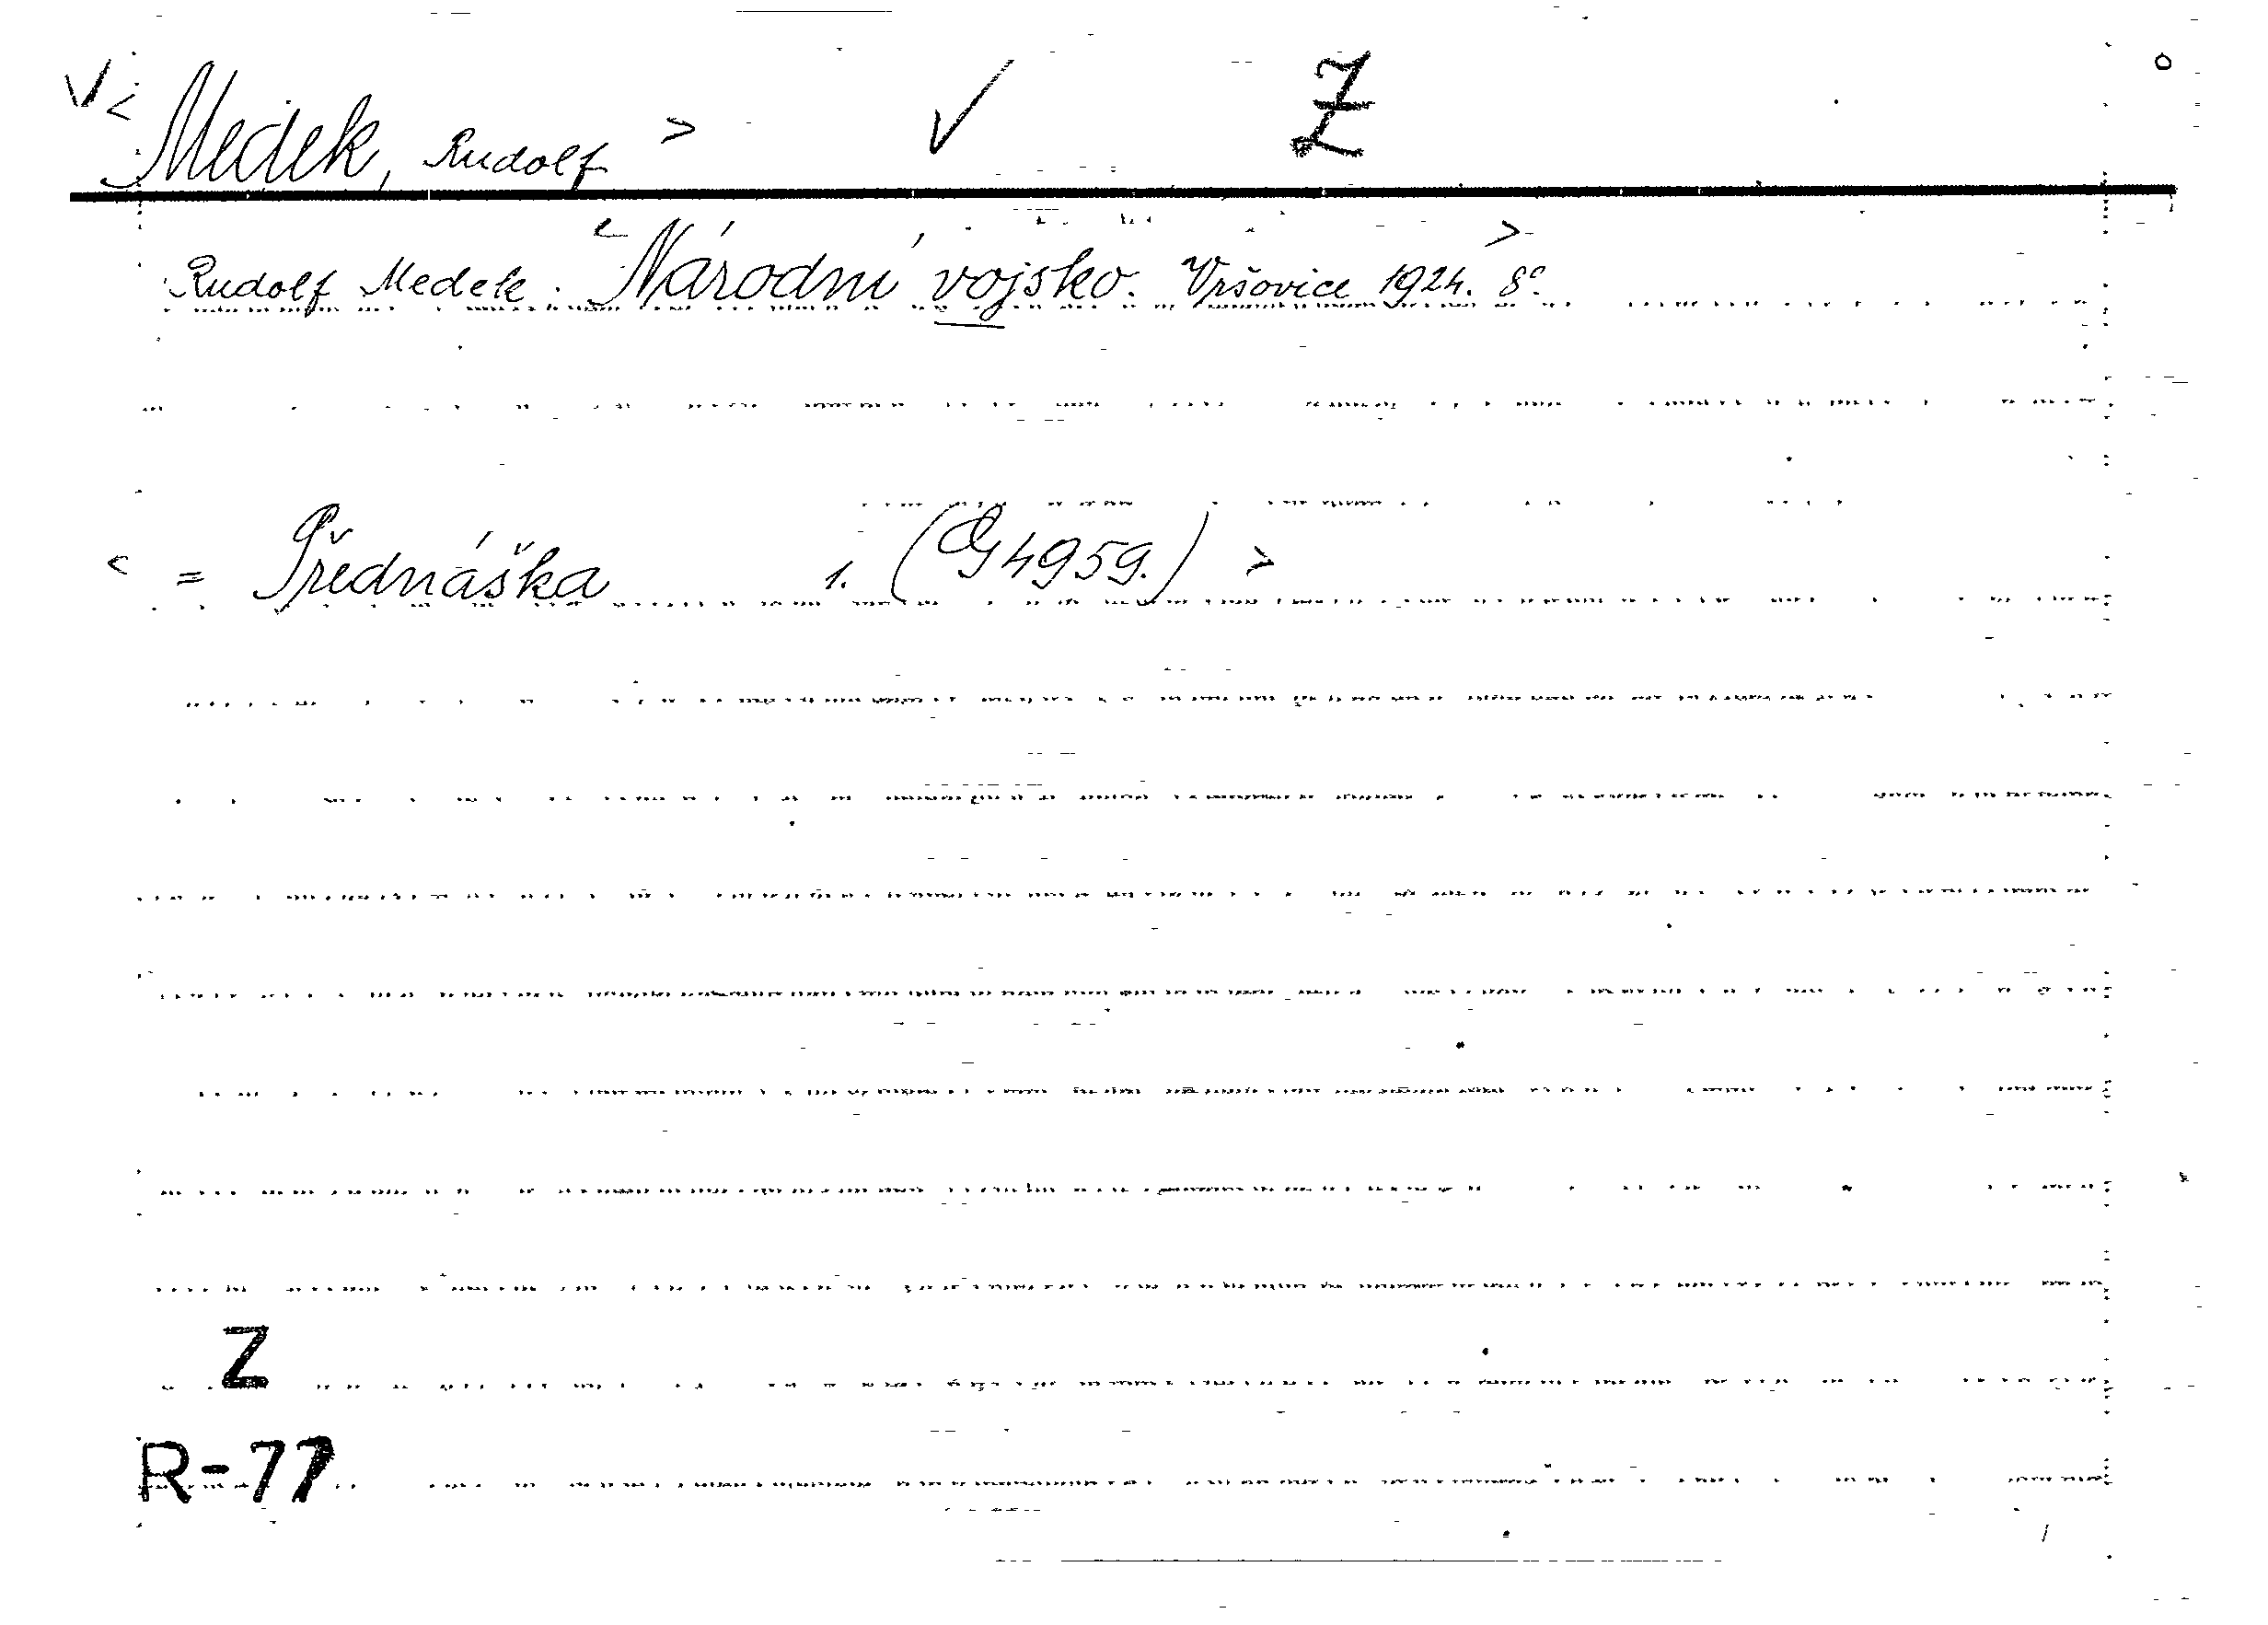 V < Medek, Rudolf > ✓ Z
Rudolf Medek: < Národní vojsko. > Vršovice 1924. 8°.
< = Přednáška 1. (G 4959.) >
Z
R-77